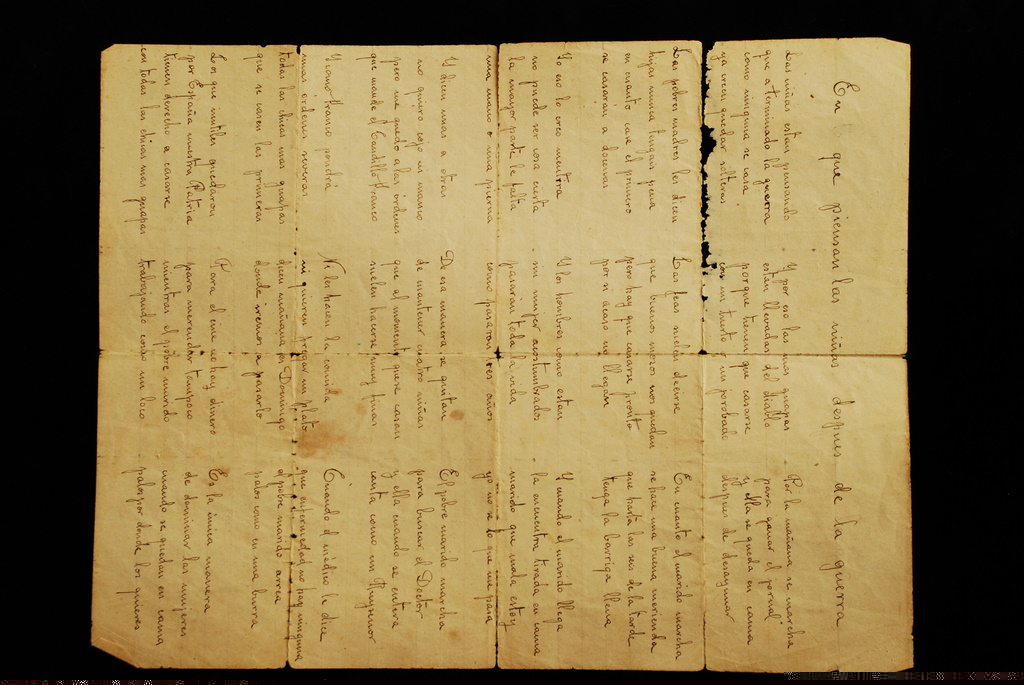 En que piensan las niñas despues de la guerra
Las niñas estan pensando
que a terminado la guerra
como ninguna se casa
ya creen quedar solteras
Las pobres madres les dicen
hijas nunca tengais pena
en cuanto cae el primero
se casaran a docenas
Yo eso lo creo mentira
no puede ser cosa cierta
la mayor parte le falta
una mano o una pierna
Y dicen unas a otras
no quiero cojo ni manco
pero me quedo a las ordenes
que mande el Caudillo Franco
Y como Franco pondrá
unas ordenes severas
todas las chicas mas guapas
que se casen las primeras
Los que inutiles quedaron
por España nuestra Patria
tienen derecho a casarse
con todas las chicas mas guapas
Y por eso las mas guapas
estan llevadas del diablo
porque tienen que casarse
con un tuerto o un jorobado
Las feas suelen decirse
que buenos mozos nos quedan
pero hay que casarse pronto
por si acaso no llegan
Y los hombres como estan
sin mujer acostumbrados
pasarian toda la vida
como pasaron tres años
De esa manera se quitan
de mantener cuatro niñas
que al momento que se casan
suelen hacerse muy finas
Ni les hacen la comida
ni quieren fregar un plato
dicen mañana es Domingo
donde iremos a pasarlo
Para el cine no hay dinero
para merendar tampoco
mientras el pobre marido
trabajando como un loco
Por la mañana se marcha
para ganar el jornal
y ella se queda en cama
depues de desayunar
En cuanto el marido marcha
se hace una buena merienda
que hasta las seis de la tarde
tenga la barriga llena
Y cuando el marido llega
la encuentra tirada en cama
marido que mala estoy
yo no se lo que me pasa
El pobre marido marcha
para buscar el Doctor
y ella cuando se entera
canta como un Ruyseñor
Cuando el médico le dice
que enfermedad no hay ninguna
el pobre marido arrea
palos como en una burra
Es la única manera
de dominar las mujeres
cuando se quedan en cama
palos por donde los quieres